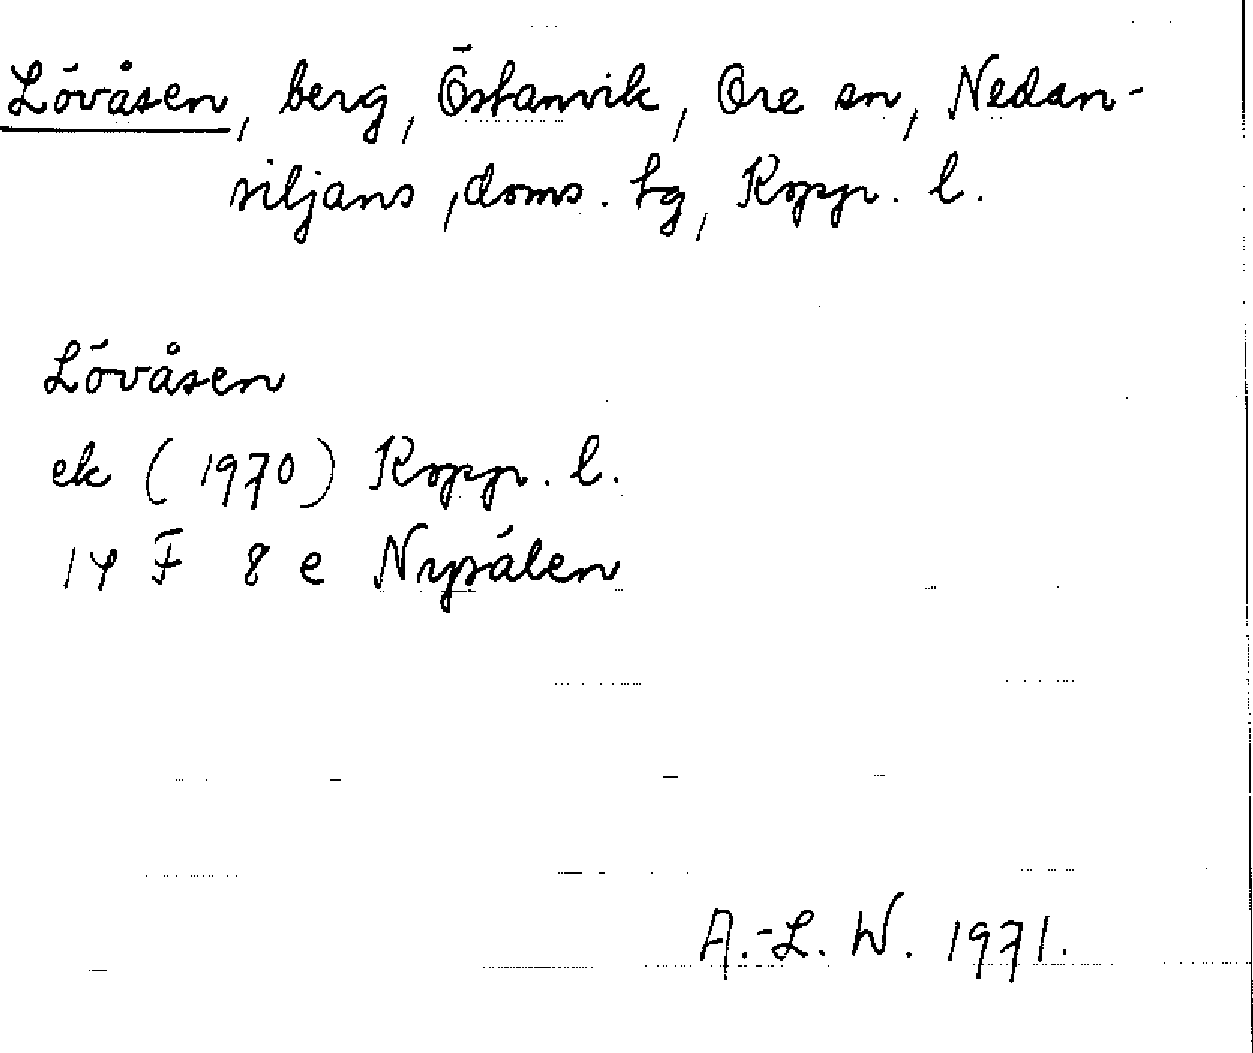 Lövåsen, berg, Östanvik, Ore sn, Nedan-
siljans, doms. tg, Kopp. l.
Lövåsen
ek (1970) Kopp. l.
14 F 8 e Nysälen
A.-L. W. 1971.